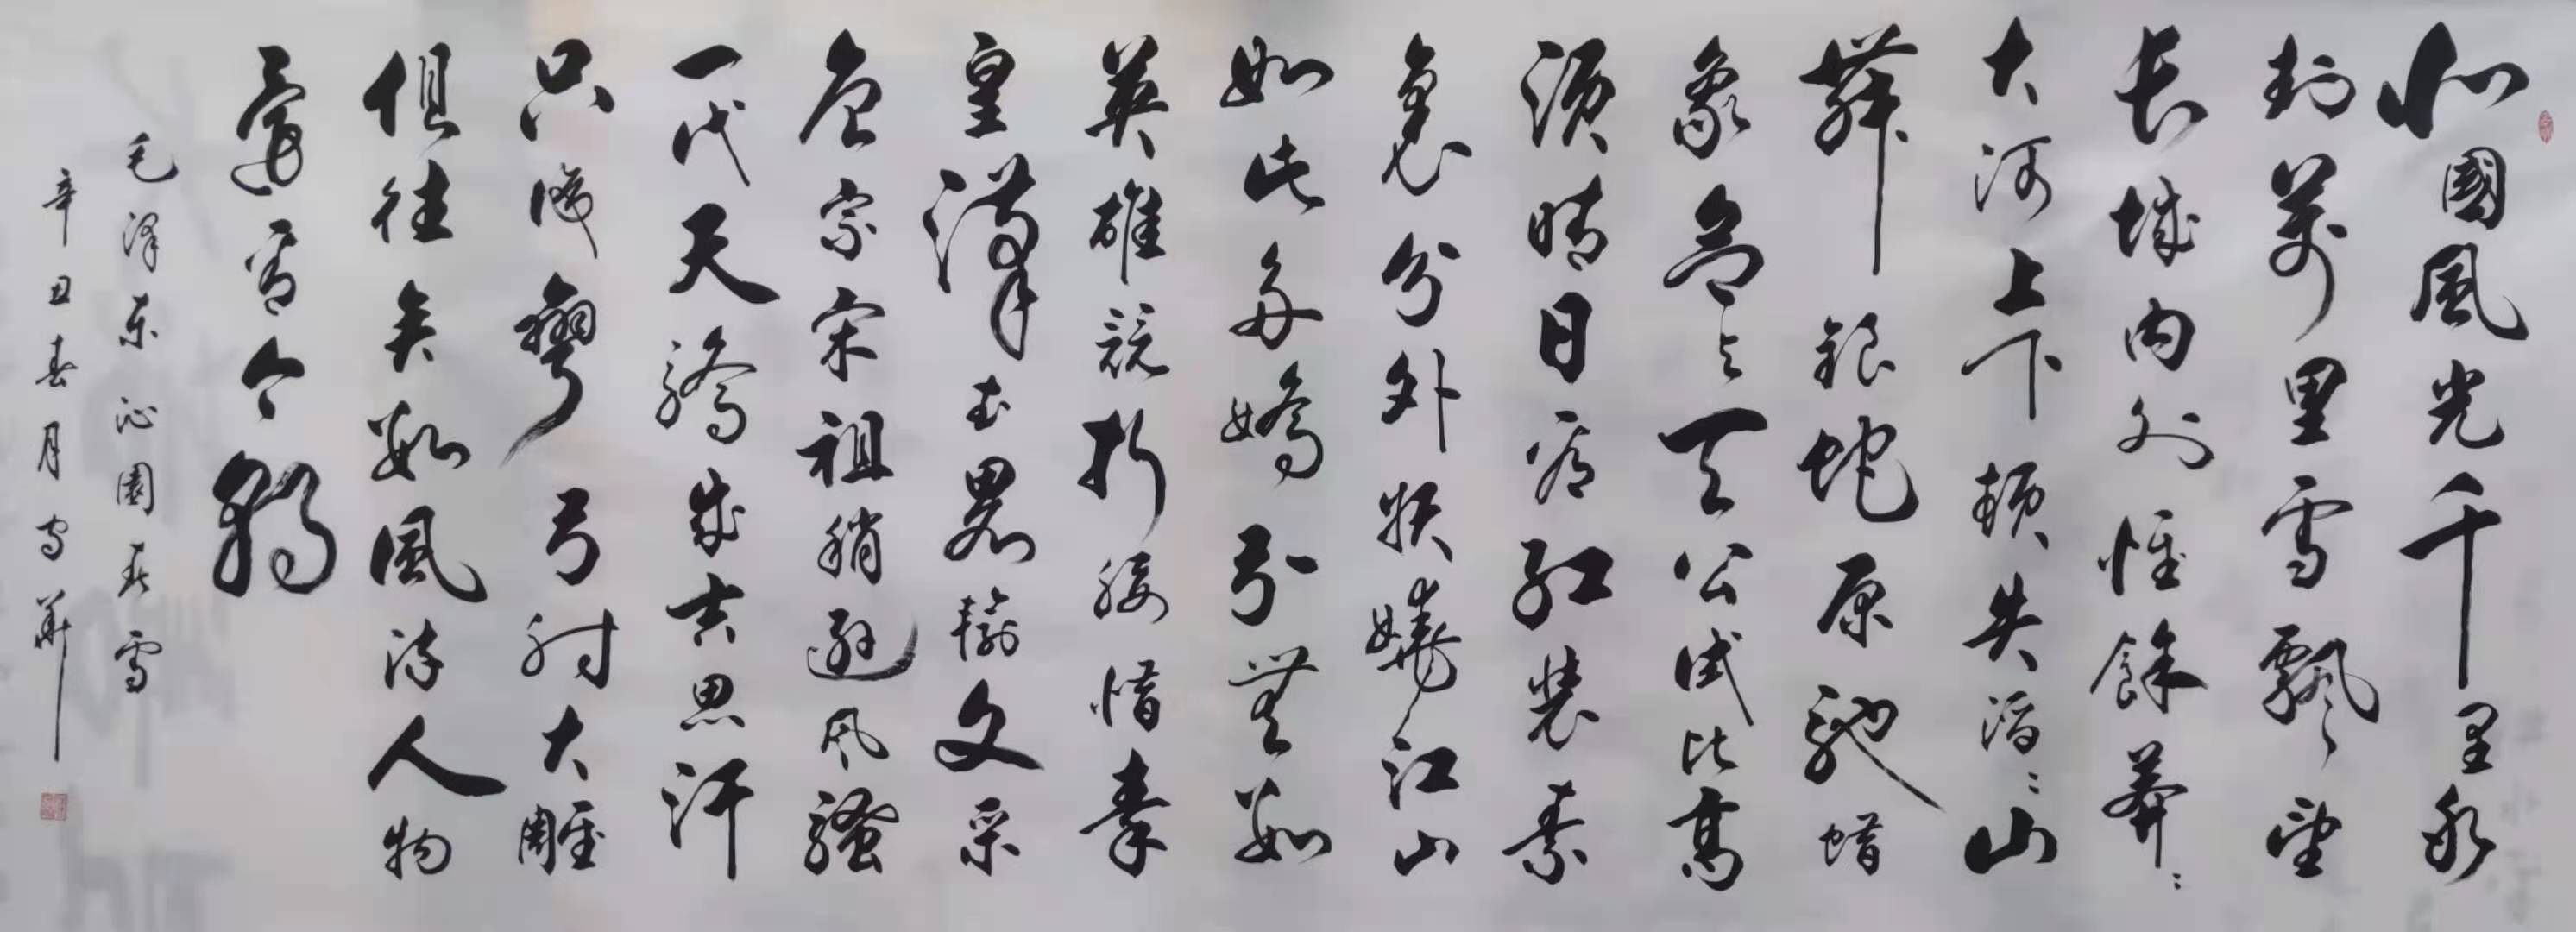 北國風光千里冰
封萬里雪飄望
长城内外惟餘莽〻
大河上下頓失滔〻山
舞銀蛇原馳蜡
象欲与天公试比高
須晴日看红装素
裹分外妖嬈江山
如此多嬌引無数
英雄競折腰惜秦
皇漢武略輸文采
唐宗宋祖稍遜风騷
一代天驕成吉思汗
只識彎弓射大雕
俱往矣数風流人物
還看今朝
毛澤东沁園春雪
辛丑春月華